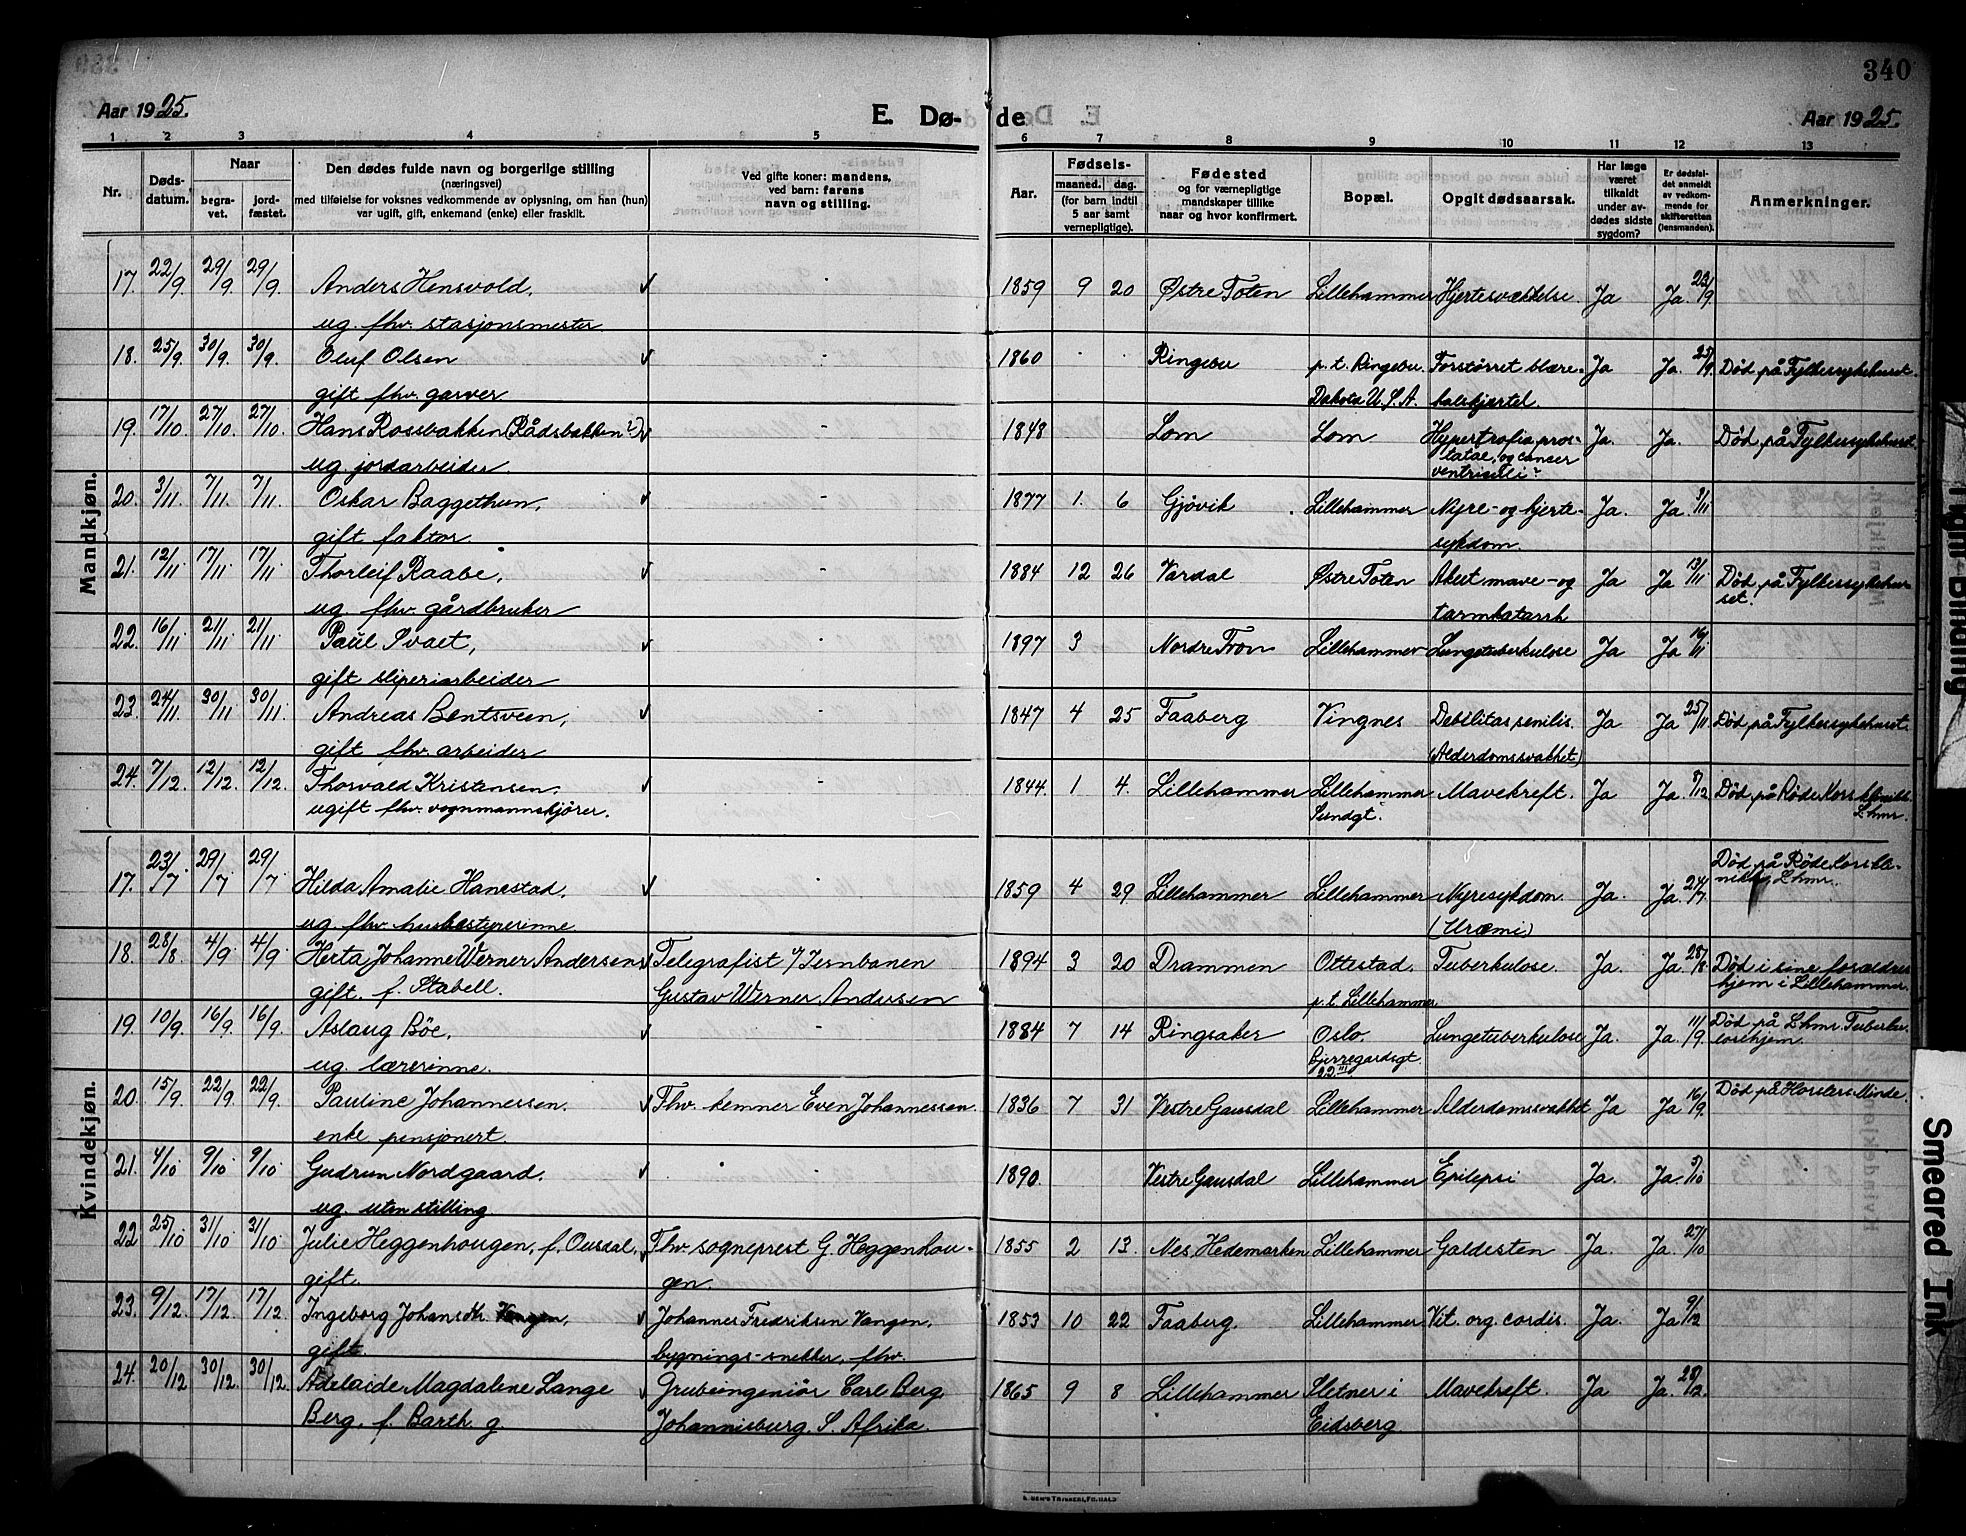 340
Aar 1925.
E. Dø-
de
Aar 1925.
1 2 3 4 5 6 7 8 9 10 11 12 13
Nr.
Døds-
datum.
Naar
begra-
vet.
jord-
fæstet.
Den dødes fulde navn og borgerlige stilling
(næringsvei)
med tilføielse for voksnes vedkommende av oplysning, om han (hun)
var ugift, gift, enkemand (enke) eller fraskilt.
Ved gifte koner: mandens,
ved barn: farens
navn og stilling.
Aar.
Fødsels-
maaned. dag.
(for barn indtil
5 aar samt
vernepligtige).
Fødested
og for værnepligtige
mandskaper tillike
naar og hvor konfirmert.
Bopæl.
Opgit dødsaarsak.
Har læge
været
tilkaldt
under av-
dødes sidste
sygdom?
Er dødsfal-
det anmeldt
av vedkom-
mende for
skifteretten
(lensmanden).
Anmerkninger.
Mandkjøn.
17. 22/9 29/9. 29/9. Anders Hensvold, - 1859 9 20 Østre Toten Lillehammer Hjertesvækkelse Ja Ja. 22/9
ug. fhv. stasjonsmester
18. 25/9. 30/9. 30/9. Oluf Olsen - 1860 - - Ringebu p.t. Ringebu Forstørret blære- Ja Ja. 25/9. Død på Fylkessykehuset.
gift fhv. garver Dakota U.S.A. halskjærtel.
19. 17/10 27/10. 27/10. Hans Rosbakken (Rådsbakken?) - 1848 Lom Lom Hypertrofia pros- Ja. Ja. Død på Fylkessykehuset
tatae, og cancer
ug. jordarbeider. ventriculi?
20. 3/11 7/11. 7/11. Oskar Baggethun, - 1877 1. 6 Gjøvik Lillehammer Nyre- og hjerte- Ja. Ja 3/11
gift faktor. sykdom.
21. 12/11 17/11. 17/11. Thorleif Raabe, 1884 12 26 Vardal Østre Toten Akut mave- og Ja Ja 13/11 Død på Fylkessykehu-
set.
ug. fhv. gårdbruker tarmkatarrh
22. 16/11 21/11 21/11. Paul Svaet, 1897 3 Nordre Fron Lillehammer Lungetuberkulose Ja Ja 16/11
gift sliperiarbeider
23. 24/11. 30/11 30/11. Andreas Bentsveen, - 1847 4 25 Faaberg Vingnes Debilitas senilis Ja Ja 25/11 Død på Fylkessykehuset.
gift fhv. arbeider (Alderdomssvakhet)
24. 7/12. 12/12. 12/12. Thorvald Kristensen, - 1844. 1 4. Lillehammer Lillehammer Mavekreft. Ja Ja. /12 Død på Røde Kors klinikk
ugift fhv. vognmannskjører. Sundgt. Lhmr.
Kvindekjøn.
17. 23/7. 29/7 29/7. Hilda Amalie Hanestad, - 1859 4 29 Lillehammer Lillehammer Nyresykdom. Ja. Ja. 24/7. Død på Røde Kors kli-
nikk, Lhmr.
ug. fhv. husbestyrerinne (Uræmi)
18. 28/8. 4/9. 4/9. Herta Johanne Werner Andersen Telegrafist v/ Jernbanen 1894 3 20 Drammen Ottestad. Tuberkulose. Ja. Ja. 28/8 Død i sine forældres
gift. f. Stabell. Gustav Werner Andersen p.t. Lillehammer hjem i Lillehammer.
19. 10/9. 16/9. 16/9. Aslaug Böe, - 1884 7 14 Ringsaker Oslo. Lungetuberkulose Ja. Ja. 11/9. Død på Lhmr. Tuberku-
losehjem.
ug. lærerinne. Bjerregardsgt.
22 III
20. 15/9. 22/9. 22/9. Pauline Johannessen. Fhv. kemner Even Johannessen. 1836 7 31 Vestre Gausdal Lillehammer Alderdomssvakhet Ja Ja 16/9. Død på Horsters Minde.
enke pensjonert.
21. 4/10 9/10 9/10 Gudrun Nordgaard. - 1890. Vestre Gausdal Lillehammer Epilepsi Ja. Ja. 5/10
ug. uten stilling
22 25/10 31/10 31/10. Julie Heggenhougen, f. Ousdal, Fhv. sogneprest G. Heggenhou- 1855 2 13. Nes, Hedemarken Lillehammer Galdesten Ja. Ja. 27/10
gift. gen.
23. 9/12. 17/12 17/12. Ingeborg Johansdtr. Vangen, Johannes Fredriksen Vangen, 1853 10 22 Faaberg. Lillehammer Vit. org. cordis. Ja. Ja 9/12
gift. bygnings-snekker, fhv.
24. 20/12 30/12. 30/12. Adelaide Magdalene Lange Grubeingeniør Carl Berg, 1865 9 8 Lillehammer Sletner i Mavekreft. Ja Ja. 28/12.
Berg, f. Barth. g Johannisburg, S. Afrika. Eidsberg.
Tight Binding
Smeared Ink